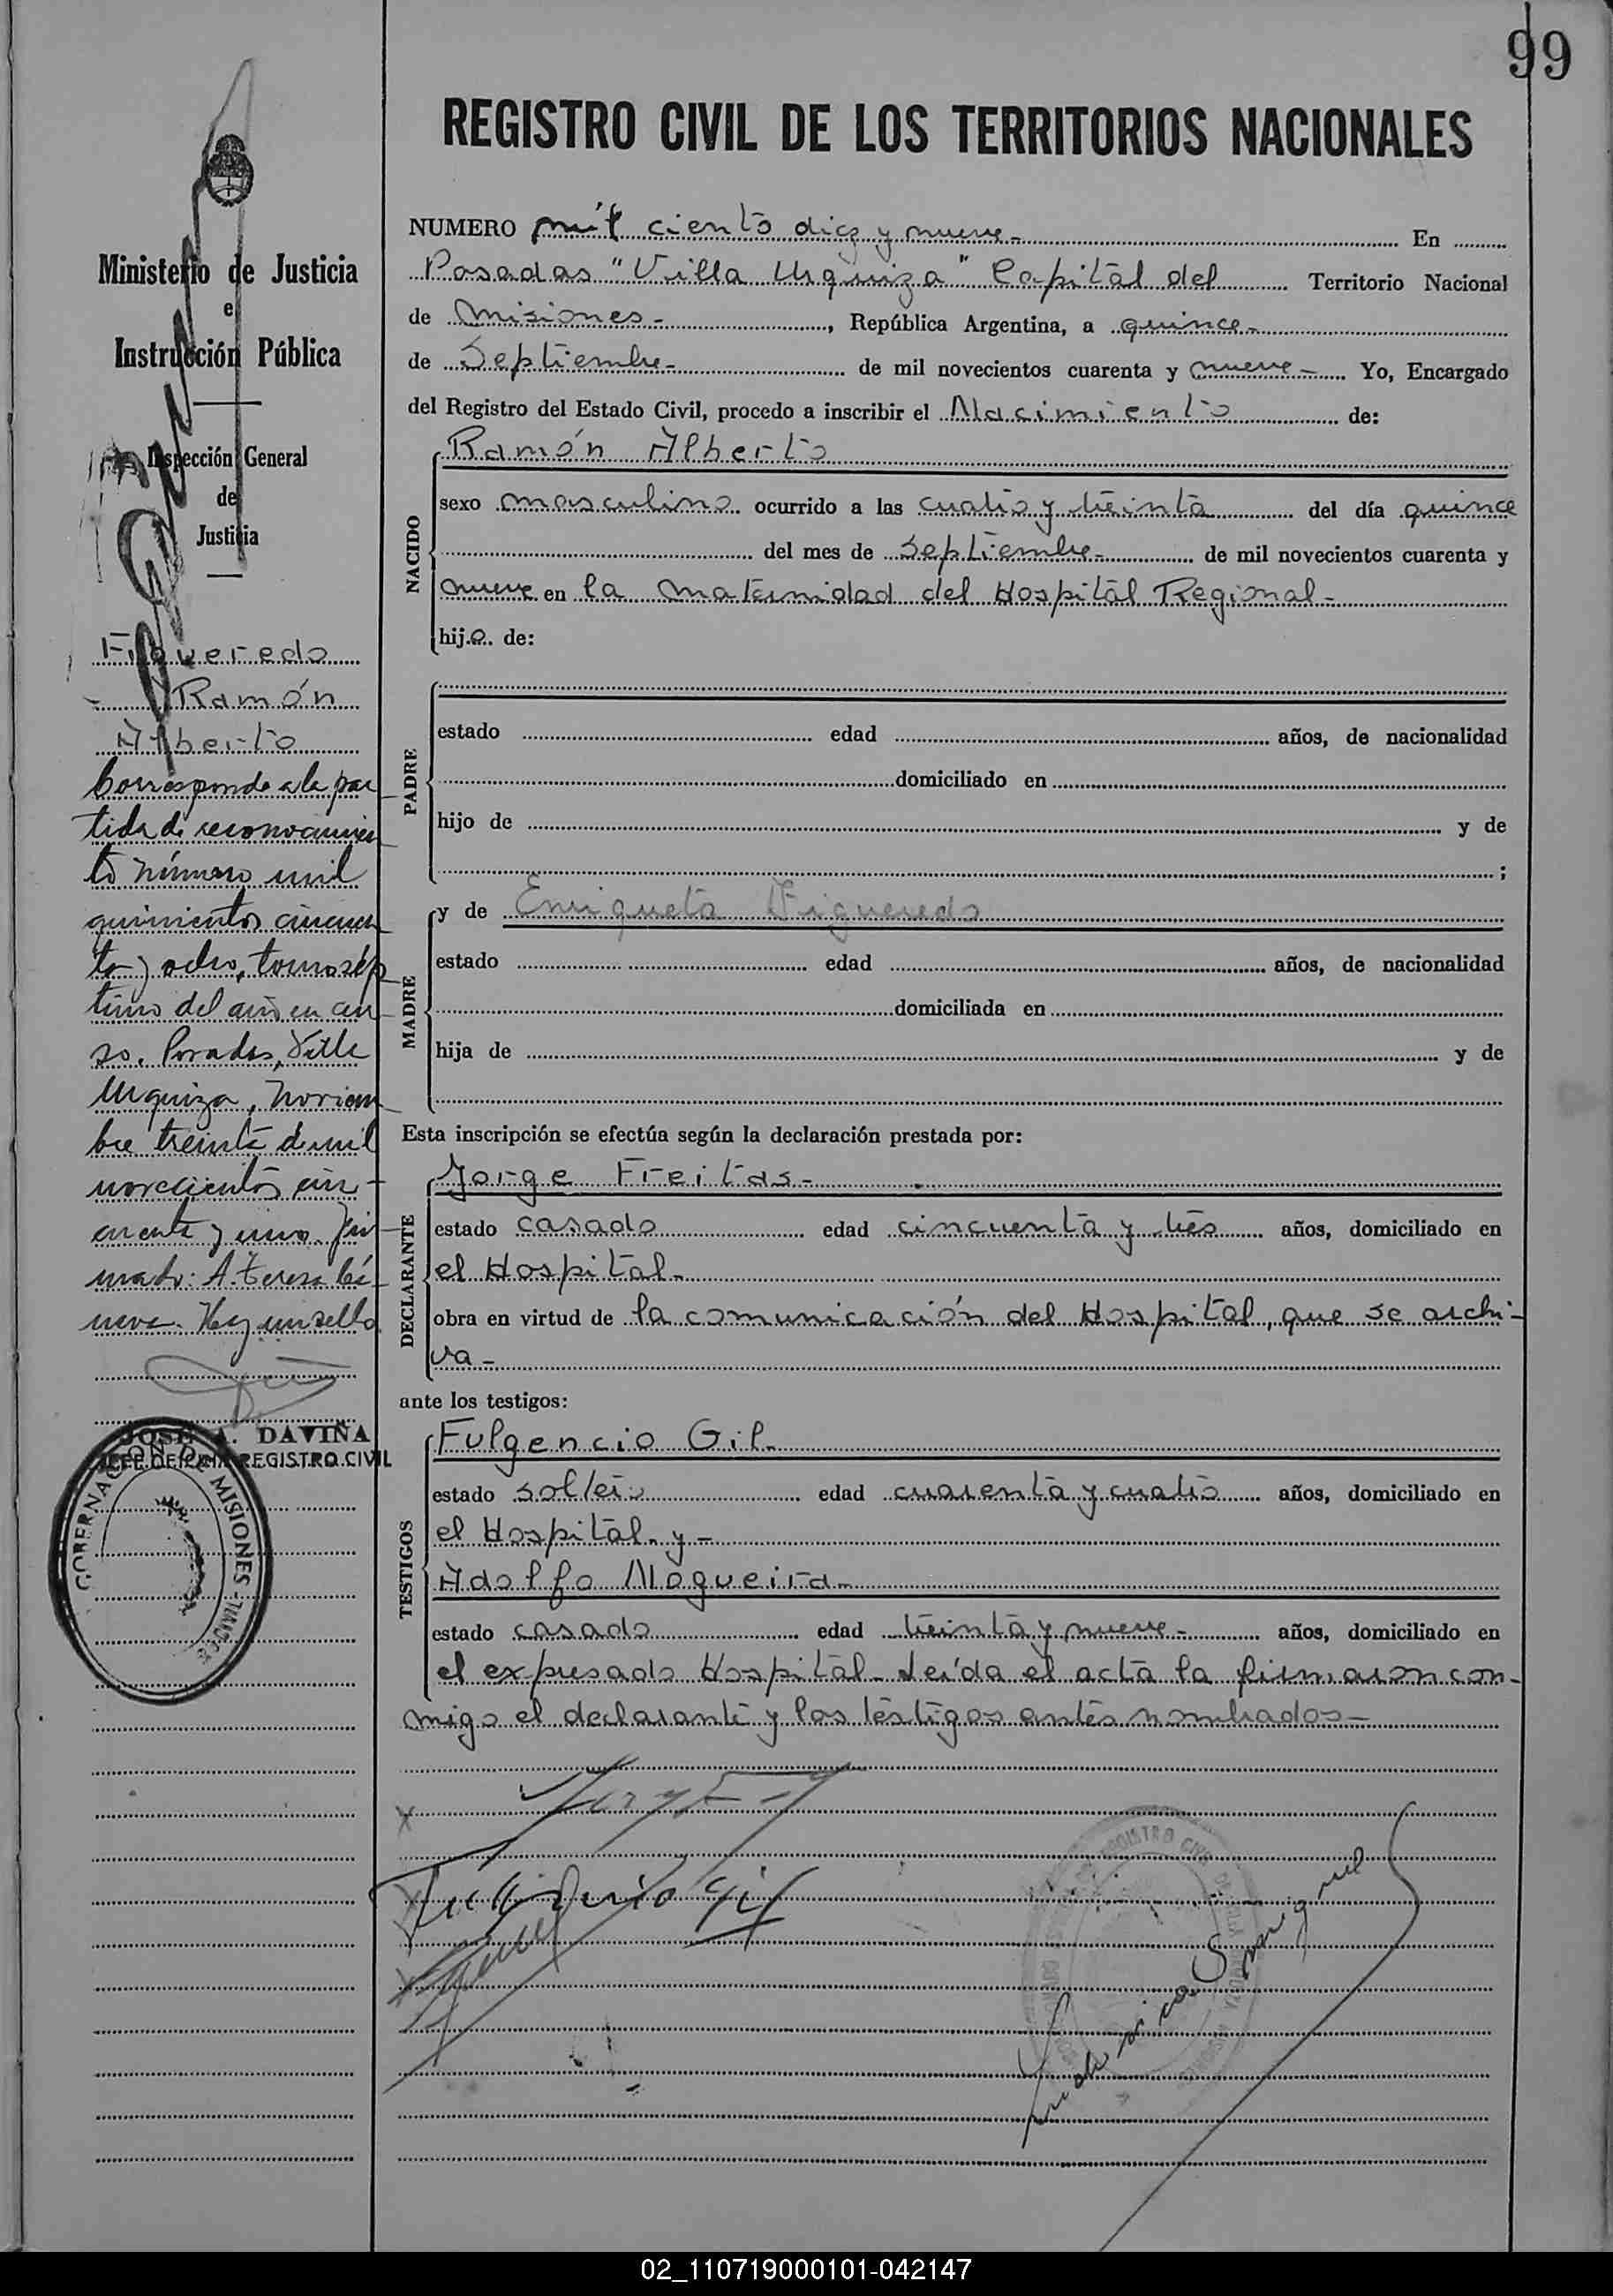 99
REGISTRO CIVIL DE LOS TERRITORIOS NACIONALES
Ministerio de Justicia
e
Instrucción Pública
Inspección General
de
Justicia
Figueredo
Ramón
Alberto
Corresponde a la par
tida de reconocimien
to número mil
quinientos cincuen
ta y ocho, tomo sép
timo del año en cur
so. Posadas, Villa
Urquiza, Noviem
bre treinta de mil
novecientos cin
cuenta y uno. Fir
mado: A. Teresa
Hay un sello
JOSE A. DAVIÑA
JEFE OFICINA REGISTRO CIVIL
GOBERNACION DE MISIONES
NUMERO mil ciento diez y nueve- En
Posadas "Villa Urquiza" Capital del Territorio Nacional
de Misiones- , República Argentina, a quince-
de Septiembre- de mil novecientos cuarenta y nueve- Yo, Encargado
del Registro del Estado Civil, procedo a inscribir el Nacimiento de:
Ramón Alberto
NACIDO
sexo masculino ocurrido a las cuatro y treinta del día quince
del mes de Septiembre- de mil novecientos cuarenta y
nueve en la maternidad del Hospital Regional-
hijo de:
PADRE
estado edad años, de nacionalidad
domiciliado en
hijo de y de
;
MADRE
y de Enriqueta Figueredo
estado edad años, de nacionalidad
domiciliada en
hija de y de
Esta inscripción se efectúa según la declaración prestada por:
Jorge Freitas-
DECLARANTE
estado casado edad cincuenta y tres años, domiciliado en
el Hospital-
obra en virtud de la comunicación del Hospital, que se archi-
va-
ante los testigos:
TESTIGOS
Fulgencio Gil-
estado soltero edad cuarenta y cuatro años, domiciliado en
el Hospital y-
Adolfo Nogueira-
estado casado edad treinta y nueve- años, domiciliado en
el expresado Hospital- Leída el acta la firmaron con-
migo el declarante y los testigos antes nombrados-
Fulgencio Gil
REGISTRO CIVIL
02_110719000101-042147